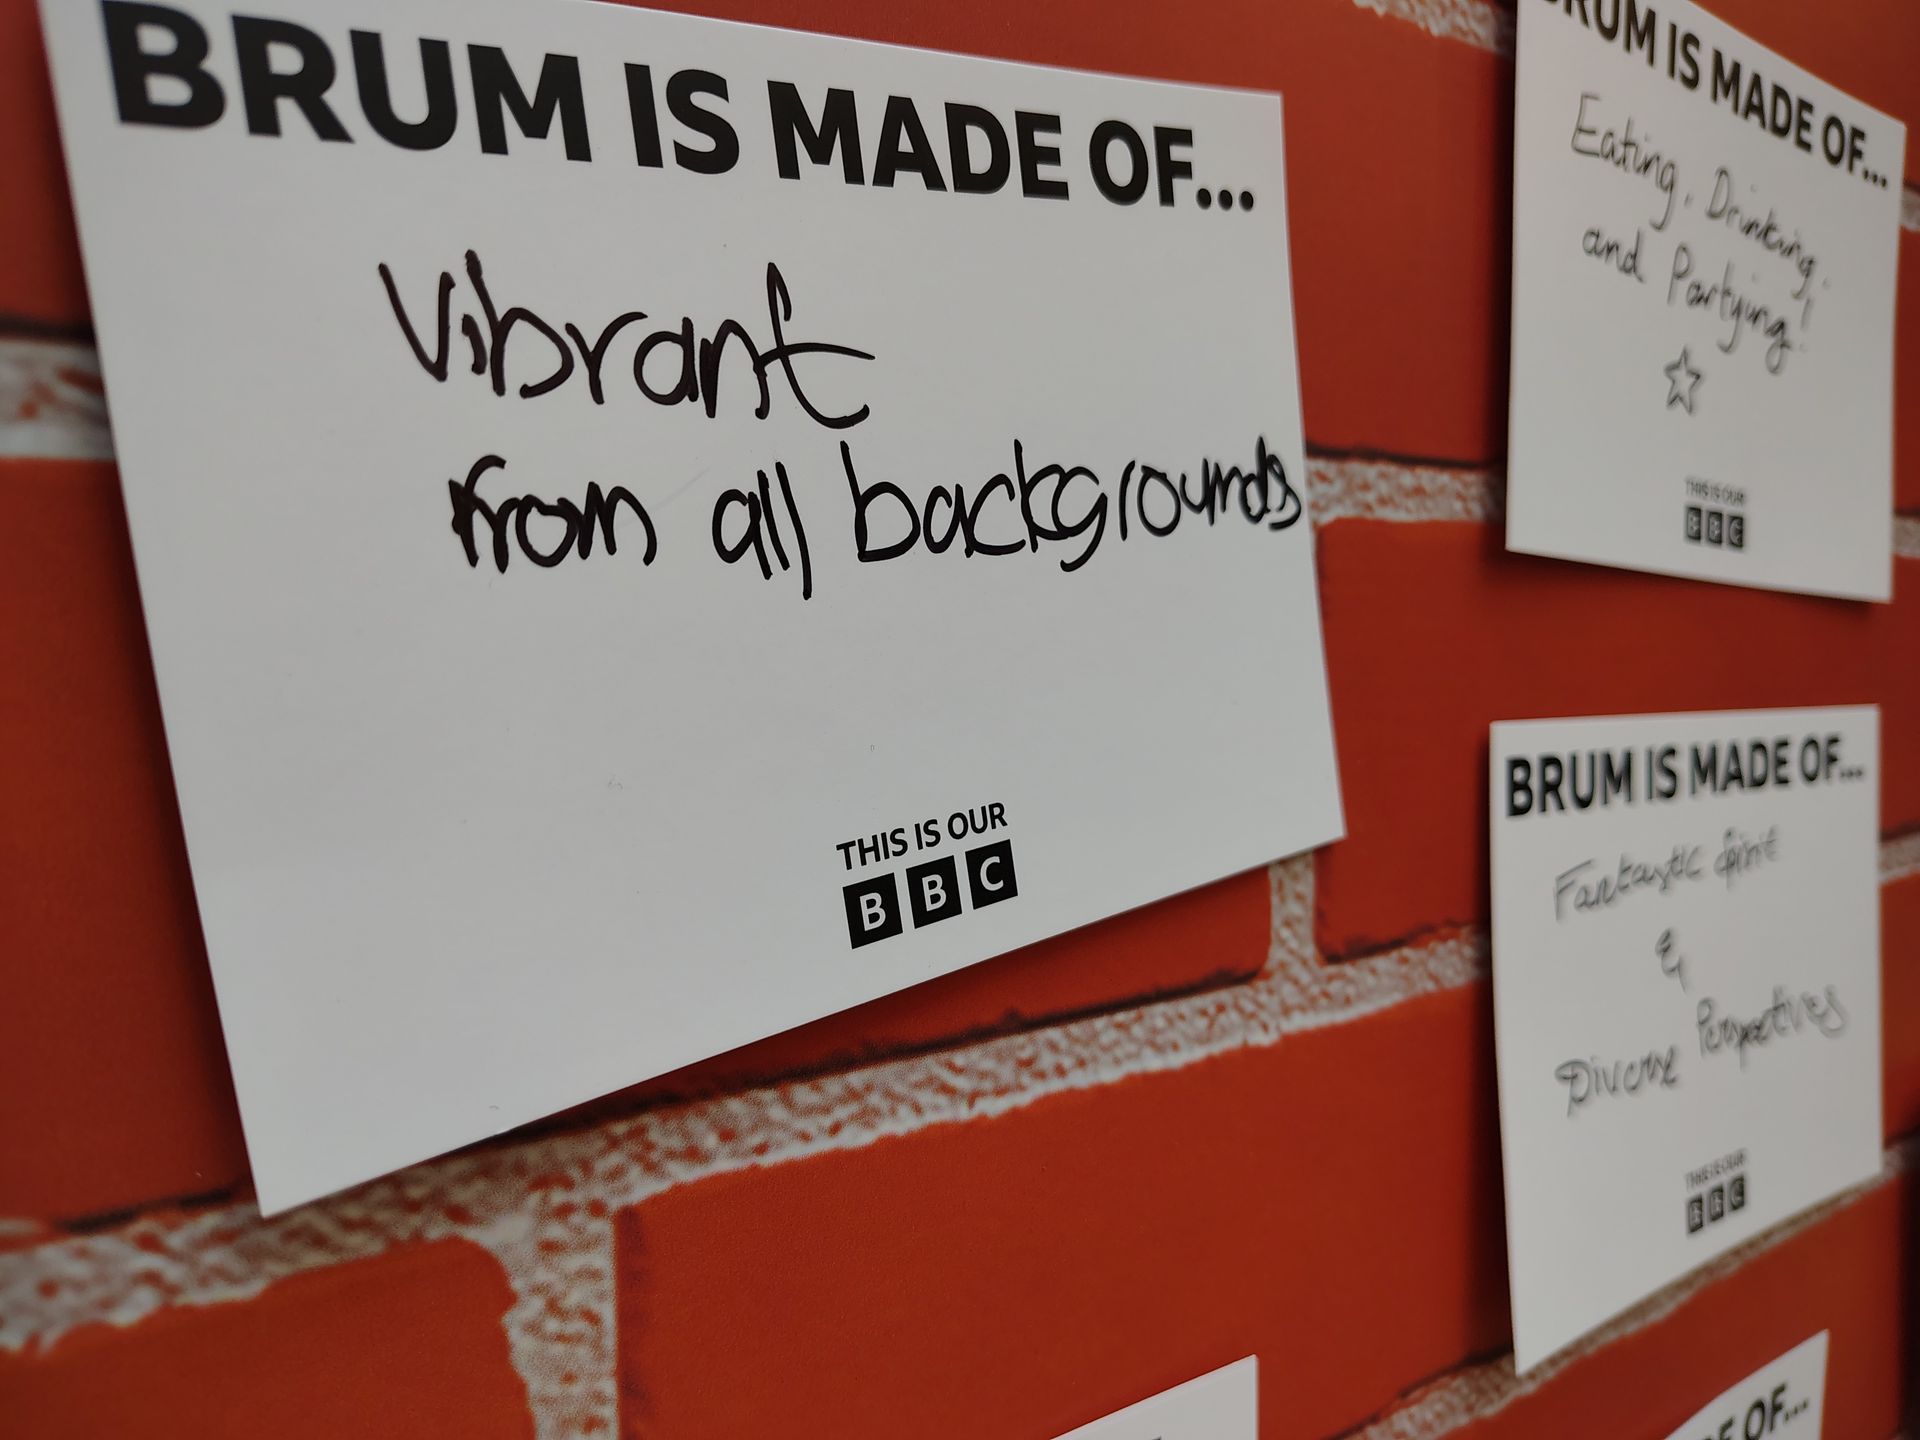 BRUM IS MADE OF...
vibrant
from all backgrounds
THIS IS OUR
BBC
BRUM IS MADE OF...
Eating, Drinking,
and Partying!
THIS IS OUR
BBC
BRUM IS MADE OF...
Fantastic spirit
&
Diverse Perspectives
THIS IS OUR
BBC
OF...